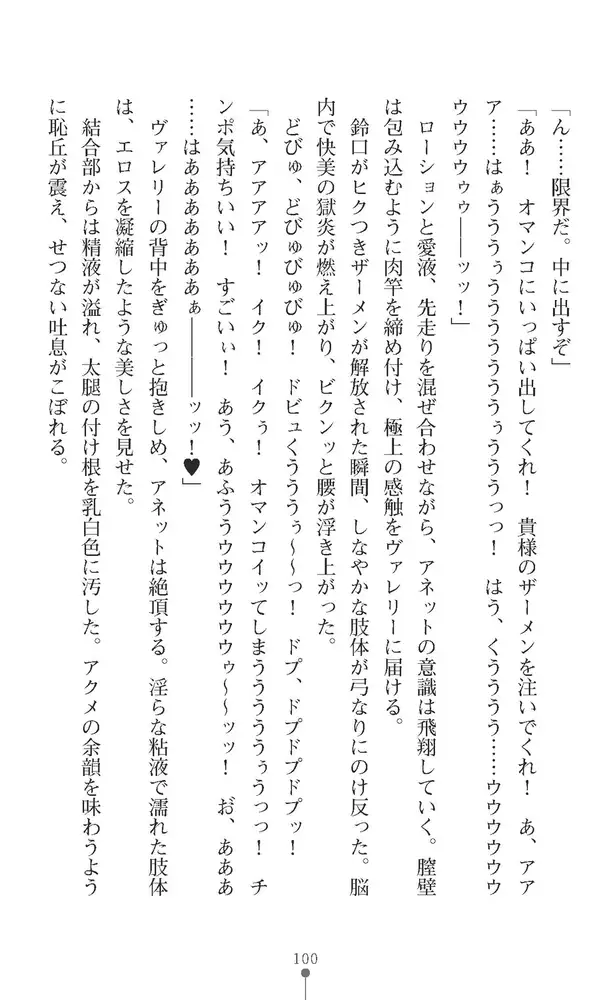 「ん……限界だ。中に出すぞ」
「ああ！　オマンコにいっぱい出してくれ！　貴様のザーメンを注いでくれ！　あ、アア
ア……はぁうううぅううううううぅうううっっ！　はう、くうううう……ウウウウウウ
ウウウウゥゥ――ッッ！」
　ローションと愛液、先走りを混ぜ合わせながら、アネットの意識は飛翔していく。膣壁
は包み込むように肉竿を締め付け、極上の感触をヴァレリーに届ける。
　鈴口がヒクつきザーメンが解放された瞬間、しなやかな肢体が弓なりにのけ反った。脳
内で快美の獄炎が燃え上がり、ビクンッと腰が浮き上がった。
　どびゅ、どびゅびゅびゅ！　ドビュくうううぅ～～っ！　ドプ、ドプドプドプッ！
「あ、アアアアッ！　イク！　イクぅ！　オマンコイッてしまうううううぅうっっ！　チ
ンポ気持ちいい！　すごいぃ！　あう、あふううウウウウウウゥ～～ッッ！　お゛、あああ
……はあああああああぁ――――ッッ！♥」
　ヴァレリーの背中をぎゅっと抱きしめ、アネットは絶頂する。淫らな粘液で濡れた肢体
は、エロスを凝縮したような美しさを見せた。
　結合部からは精液が溢れ、太腿の付け根を乳白色に汚した。アクメの余韻を味わうよう
に恥丘が震え、せつない吐息がこぼれる。
100